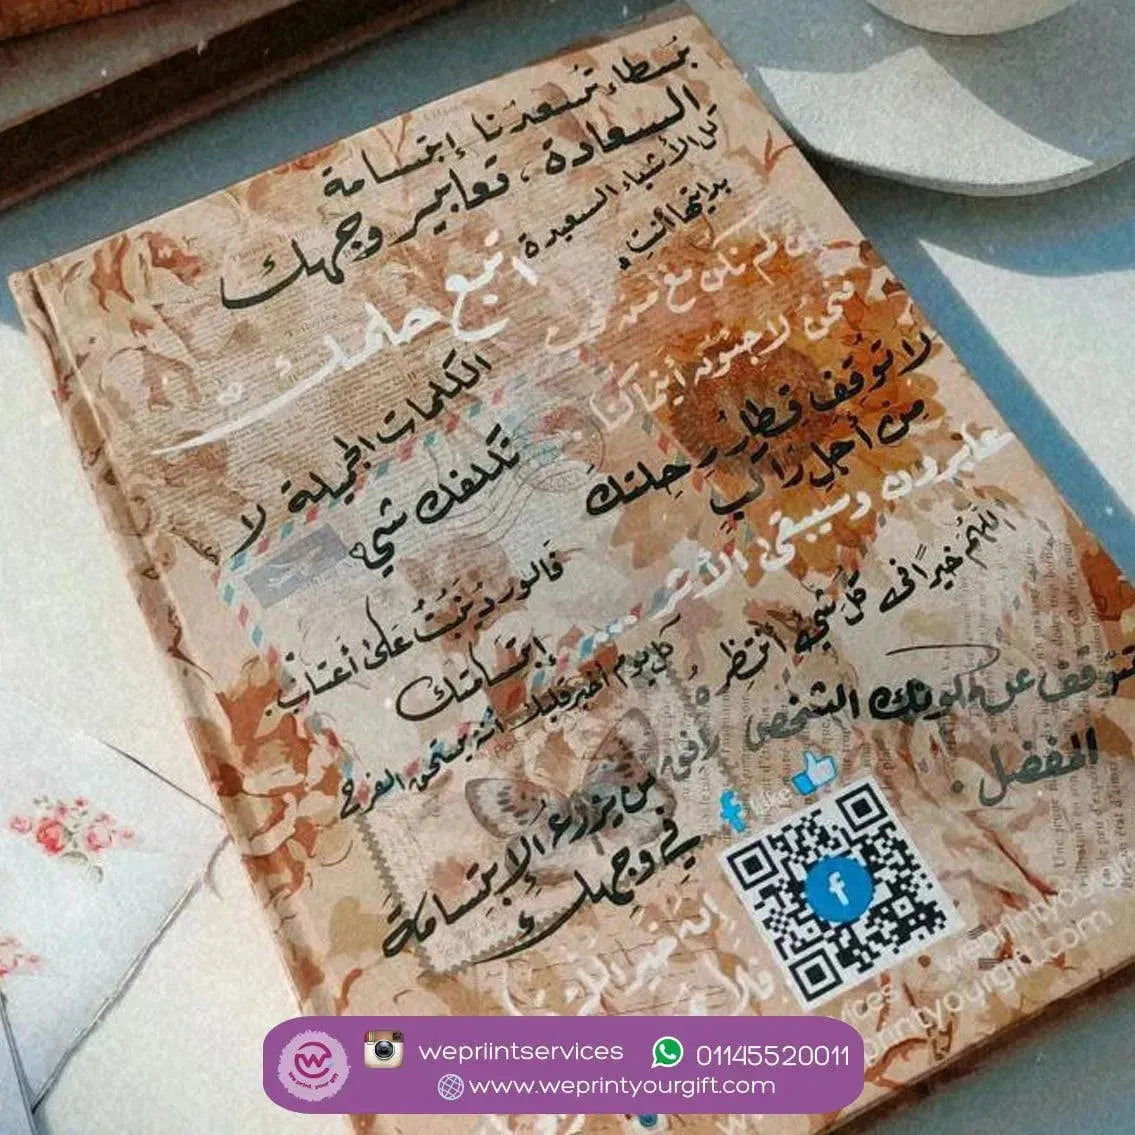 بسطاء تسعدنا إبتسامة
السعادة ، تعابير وجهك
كل الأشياء السعيدة
بدايتها أنتِ
اتبع حلمك
إن لم نكن مع
فنحن لاجئون أينما كنا
الكلمات الجميلة لا
تكلفك شيء
لا توقف قطار رحلتك
من أجل راكب
عابرون وسيبقى الأثر...
اللهم خيراً في كل شيء أنتظره
فالورد ينبت على أعتاب
إبتسامتك
كل يوم أخبر قلبك انه يستحق الفرح
توقف عن كونك الشخص
المفضل .
لأفق
من يزرع الإبتسامة
في وجهك
f Like
f
weprintyourgift
weprintyourgift.com
we print your gift
weprintservices
01145520011
www.weprintyourgift.com